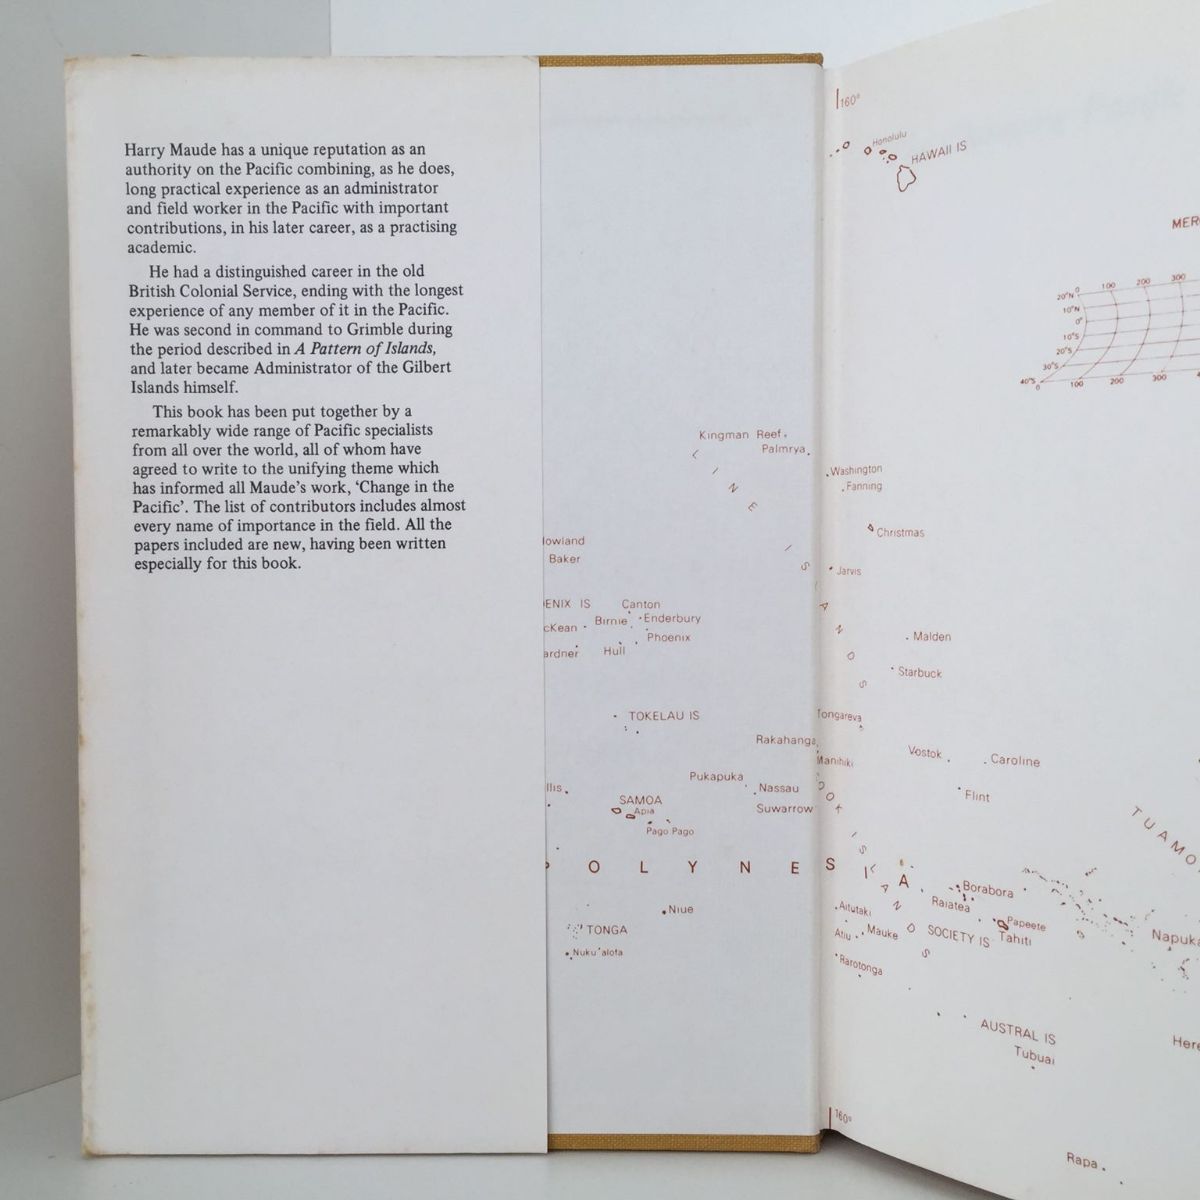 Harry Maude has a unique reputation as an
authority on the Pacific combining, as he does,
long practical experience as an administrator
and field worker in the Pacific with important
contributions, in his later career, as a practising
academic.
He had a distinguished career in the old
British Colonial Service, ending with the longest
experience of any member of it in the Pacific.
He was second in command to Grimble during
the period described in A Pattern of Islands,
and later became Administrator of the Gilbert
Islands himself.
This book has been put together by a
remarkably wide range of Pacific specialists
from all over the world, all of whom have
agreed to write to the unifying theme which
has informed all Maude's work, ‘Change in the
Pacific’. The list of contributors includes almost
every name of importance in the field. All the
papers included are new, having been written
especially for this book.
160°
Honolulu
HAWAII IS
MER
0 100 200 300
20°N
10°N
0°
10°S
20°S
30°S
40°S
0 100 200 300
Kingman Reef
Palmrya
LINE ISLANDS
Washington
Fanning
Christmas
Jarvis
owland
Baker
ENIX IS
Canton
Birnie
Enderbury
cKean
Phoenix
ardner
Hull
Malden
Starbuck
TOKELAU IS
Tongareva
Rakahanga
Manihiki
Vostok
Caroline
Flint
Pukapuka
Nassau
Suwarrow
llis
SAMOA
Apia
Pago Pago
OOK ISLANDS
TUAMO
POLYNESIA
Borabora
Raiatea
Papeete
Tahiti
SOCIETY IS
Napuka
Niue
TONGA
Nuku'alofa
Aitutaki
Atiu
Mauke
Rarotonga
AUSTRAL IS
Tubuai
Here
160°
Rapa